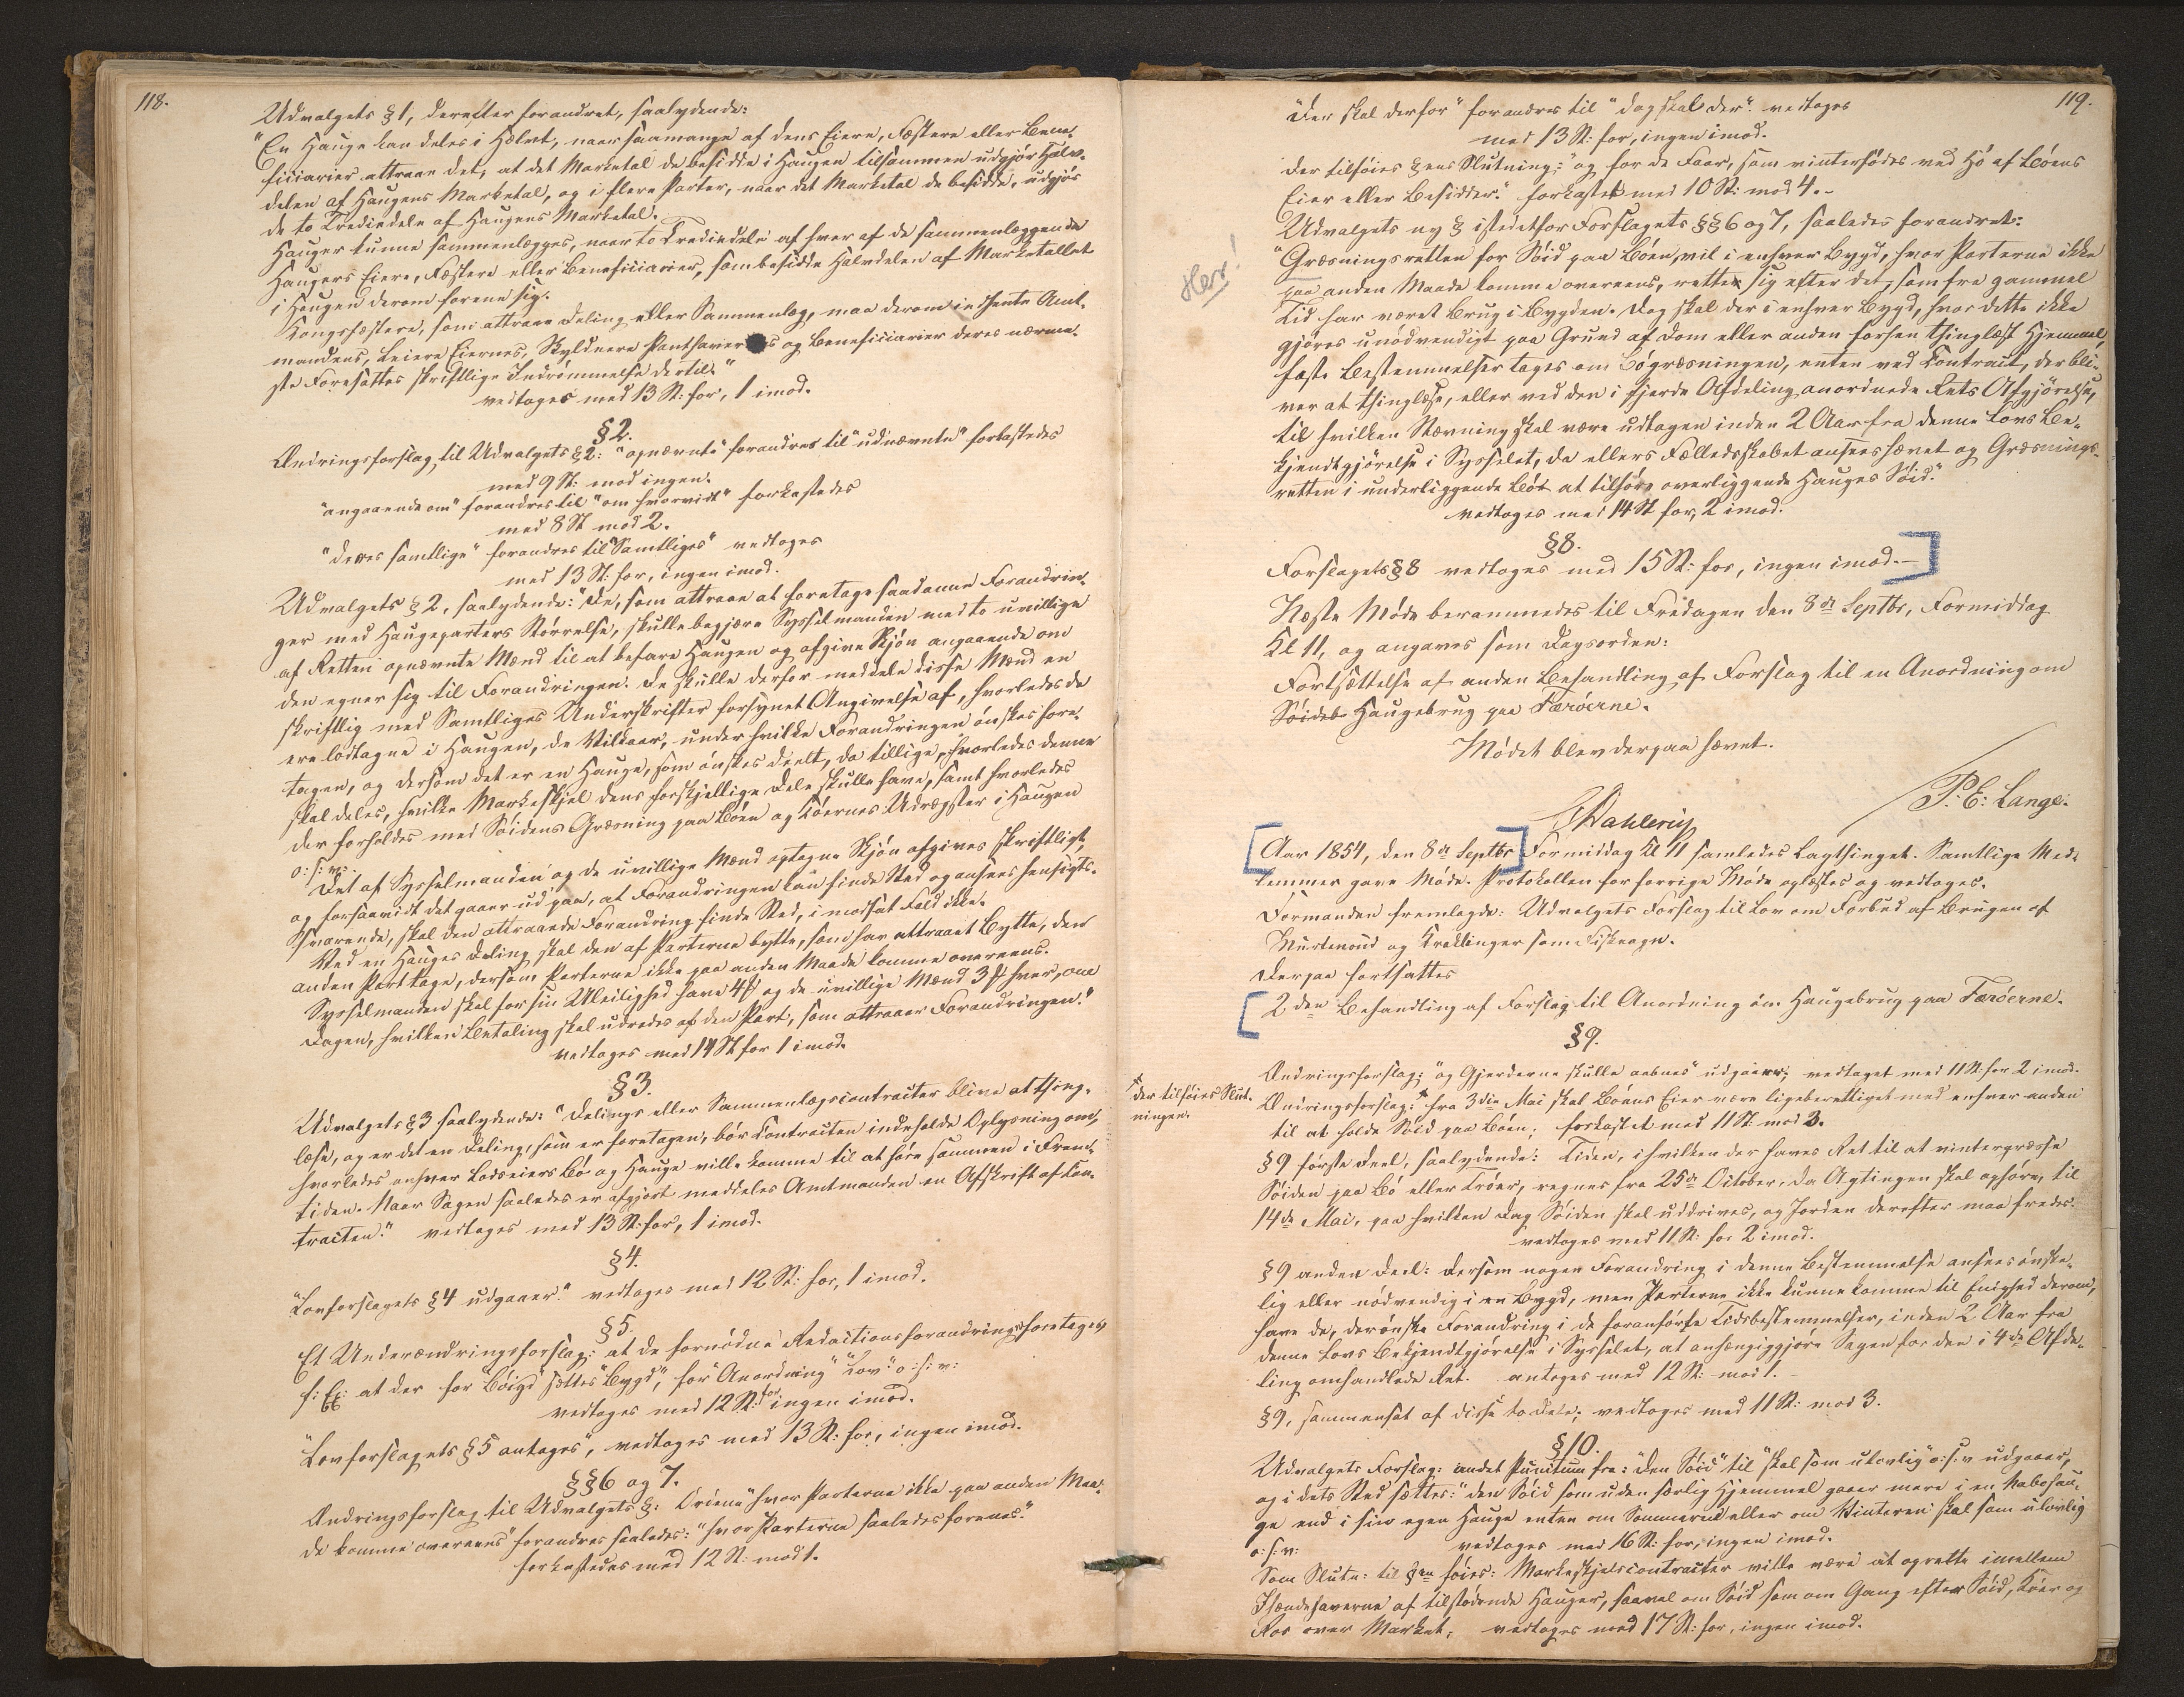 118.
Udvalgets § 1, derefter forandret, saalydende:
"En Hauge kan deles i Halvt, naar saamange af dens Eiere, Fæstere eller Bene-
ficiarier attraae det, at det Marketal de besidde i Haugen tilsammen udgjør Halv-
delen af Haugens Marketal, og i flere Parter, naar det Marketal de besidde, udgjør
de to Trediedele af Haugens Marketal.
Hauger kunne sammenlægges, naar to Trediedele af hver af de sammenlæggende
Haugers Eiere, Fæstere eller Beneficiarier, som besidde Halvdelen af Marketallet
i Haugen derom forene sig.
Kongsfæstere, som attraae Deling eller Sammenlæg, maa derom indhente Amt-
mandens, Leiere Eiernes, Skyldnere Panthavernes og Beneficiarier deres nærme-
ste Foresattes skriftlige Indrømmelse dertil."
vedtoges med 13 St: for, 1 imod.
§ 2.
Ændringsforslag til Udvalgets § 2: "opnævnte" forandres til "udnævnte" forkastedes
med 9 St: mod ingen.
"angaaende om" forandres til "om hvorvidt" forkastedes
med 8 St mod 2.
"deres samtlige" forandres til "Samtliges" vedtoges
med 13 St: for, ingen imod.
Udvalgets § 2, saalydende: "De, som attraae at foretage saadanne Forandrin-
ger med Haugeparters Størrelse, skulle begjære Sysselmanden med to uvillige
af Retten opnævnte Mænd til at befare Haugen og afgive Skjøn angaaende om
den egner sig til Forandringen. De skulle derfor meddele disse Mænd en
skriftlig med Samtliges Underskrifter forsynet Angivelse af, hvorledes de
ere lodtagne i Haugen, de Vilkaar, under hvilke Forandringen ønskes fore-
tagen, og dersom det er en Hauge, som ønskes deelt, da tillige, hvorledes denne
skal deles, hvilke Markeskjel dens forskjellige Dele skulle have, samt hvorledes
der forholdes med Søidens Græsning paa Bøen og Køernes Udrægster i Haugen
o: s: v:
Det af Sysselmanden og de uvillige Mænd optagne Skjøn afgives skriftligt,
og forsaavidt det gaaer ud paa, at Forandringen kan finde Sted og ansees hensigts-
svarende, skal den attraaede Forandring finde Sted, i modsat Fald ikke.
Ved en Hauges Deling skal den af Parterne bytte, som har attraaet Bytte, den
anden Part tage, dersom Parterne ikke paa anden Maade komme overeens.
Sysselmanden skal for sin Uleilighed have 4 ℔ og de uvillige Mænd 3 ℔ hver, om
Dagen, hvilken Betaling skal udredes af den Part, som attraaer Forandringen."
vedtoges med 14 St for 1 imod.
§ 3.
Udvalgets § 3 saalydende: "Delings eller Sammenlægscontracter blive at thing-
læse, og er det en Deling, som er foretagen, bør Contracten indeholde Oplysning om,
hvorledes enhver Lodseiers Bø og Hauge ville komme til at høre sammen i Frem-
tiden. Naar Sagen saaledes er afgjort meddeles Amtmanden en Afskrift af Con-
tracten." vedtoges med 13 St: for, 1 imod.
§ 4.
"Lovforslagets § 4 udgaaer." vedtoges med 12 St: for, 1 imod.
§ 5.
Et Underændringsforslag: at de fornødne Redactionsforandringer foretages,
f: Ex: at der for "Bøigd" sættes "Bygd", for "Anordning" "Lov" o: s: v:
vedtoges med 12 St: for ingen imod.
"Lovforslagets § 5 antages", vedtoges med 13 St: for, ingen imod.
§§ 6 og 7.
Ændringsforslag til Udvalgets §: Ordene "hvor Parterne ikke paa anden Maa-
de komme overeens" forandres saaledes: "hvor Parterne saaledes forenes."
forkastedes med 12 St: mod 1.
119.
"Der skal derfor" forandres til "dog skal der" vedtoges
med 13 St: for, ingen imod.
der tilføies §ens Slutning: "og for de Faar, som vinterfødes ved Hø af Bøens
Eier eller Besidder." forkastet med 10 St: mod 4.-
Udvalgets ny § istedetfor Forslagets §§ 6 og 7, saaledes forandret:
Her!
"Græsningsretten for Søid paa Bøen, vil i enhver Bygd, hvor Parterne ikke
paa anden Maade komme overeens, rette sig efter det, som fra gammel
Tid har været Brug i Bygden. Dog skal der i enhver Bygd, hvor dette ikke
gjøres unødvendigt paa Grund af Dom eller anden forhen thinglæst Hjemmel,
faste Bestemmelser tages om Bøgræsningen, enten ved Contract, der bli-
ver at thinglæse, eller ved den i fjerde Afdeling anordnede Rets Afgjørelse,
til hvilken Stævning skal være udtagen inden 2 Aar fra denne Lovs Be-
kjendtgjørelse i Sysselet, da ellers Fælledsskabet ansees hævet og Græsnings-
retten i underliggende Bøe at tilhøre overliggende Hauges Søid."
vedtoges med 14 St for, 2 imod.
§ 8.
Forslagets § 8 vedtoges med 15 St: for, ingen imod.-
Næste Møde berammedes til Fredagen den 8de Septbr, Formiddag
Kl 11, og angaves som Dagsorden:
Fortsættelse af anden Behandling af Forslag til en Anordning om
Søidebs Haugebrug paa Færøerne.
Mødet blev derpaa hævet.
Dahlerup P. E: Lange.
Aar 1854, den 8de Septbr Formiddag Kl 11 samledes Lagthinget. Samtlige Med-
lemmer gave Møde. Protokollen for forrige Møde oplæstes og vedtoges.
Formanden fremlagde: Udvalgets Forslag til Lov om Forbud af Brugen af
Murtenoud og Kræklinger som Fiskeagn.
Derpaa fortsattes
2den Behandling af Forslag til Anordning om Haugebrug paa Færøerne.
§ 9.
Ændringsforslag: "og Gjerderne skulle aabnes" udgaaer; vedtaget med 11 St: for 2 imod.
* der tilføies Slut-
ningen:
Ændringsforslag: * fra 3die Mai skal Bøens Eier være ligeberettiget med enhver anden
til at holde Søid paa Bøen; forkastet med 11 St: mod 3.
§ 9 første Deel, saalydende: Tiden, i hvilken der haves Ret til at vintergræsse
Søiden paa Bø eller Trøer, regnes fra 25de October, da Agtingen skal ophøre, til
14de Mai, paa hvilken Dag Søiden skal uddrives, og Jorden derefter maa fredes.
vedtoges med 11 St: for 2 imod.
§ 9 anden Deel: Dersom nogen Forandring i denne Bestemmelse ansees ønske-
lig eller nødvendig i en Bygd, men Parterne ikke kunne komme til Enighed derom,
have de, der ønske Forandring i de foranførte Tidsbestemmelser, inden 2 Aar fra
denne Lovs Bekjendtgjørelse i Sysselet, at anhængiggjøre Sagen for den i 4de Afde-
ling omhandlede Ret. antoges med 12 St: mod 1.
§ 9, sammensat af disse to Dele; vedtoges med 11 St: mod 3.
§ 10.
Udvalgets Forslag: andet Punctum fra: "Den Søid" til "skal som ulovlig" o: s: v udgaaer,
og i dets Sted sættes: "den Søid som uden særlig Hjemmel gaaer mere i en Nabohau-
ge end i sin egen Hauge enten om Sommeren eller om Vinteren skal som ulovlig
o: s: v: vedtoges med 16 St: for, ingen imod.
Som Slutn: til §en føies: Markeskjelscontracter ville være at oprette imellem
Ihændehaverne af tilstødende Hauger, saavel om Søid som om Gang efter Søid, Køer og
Ros over Market; vedtoges med 17 St: for, ingen imod.